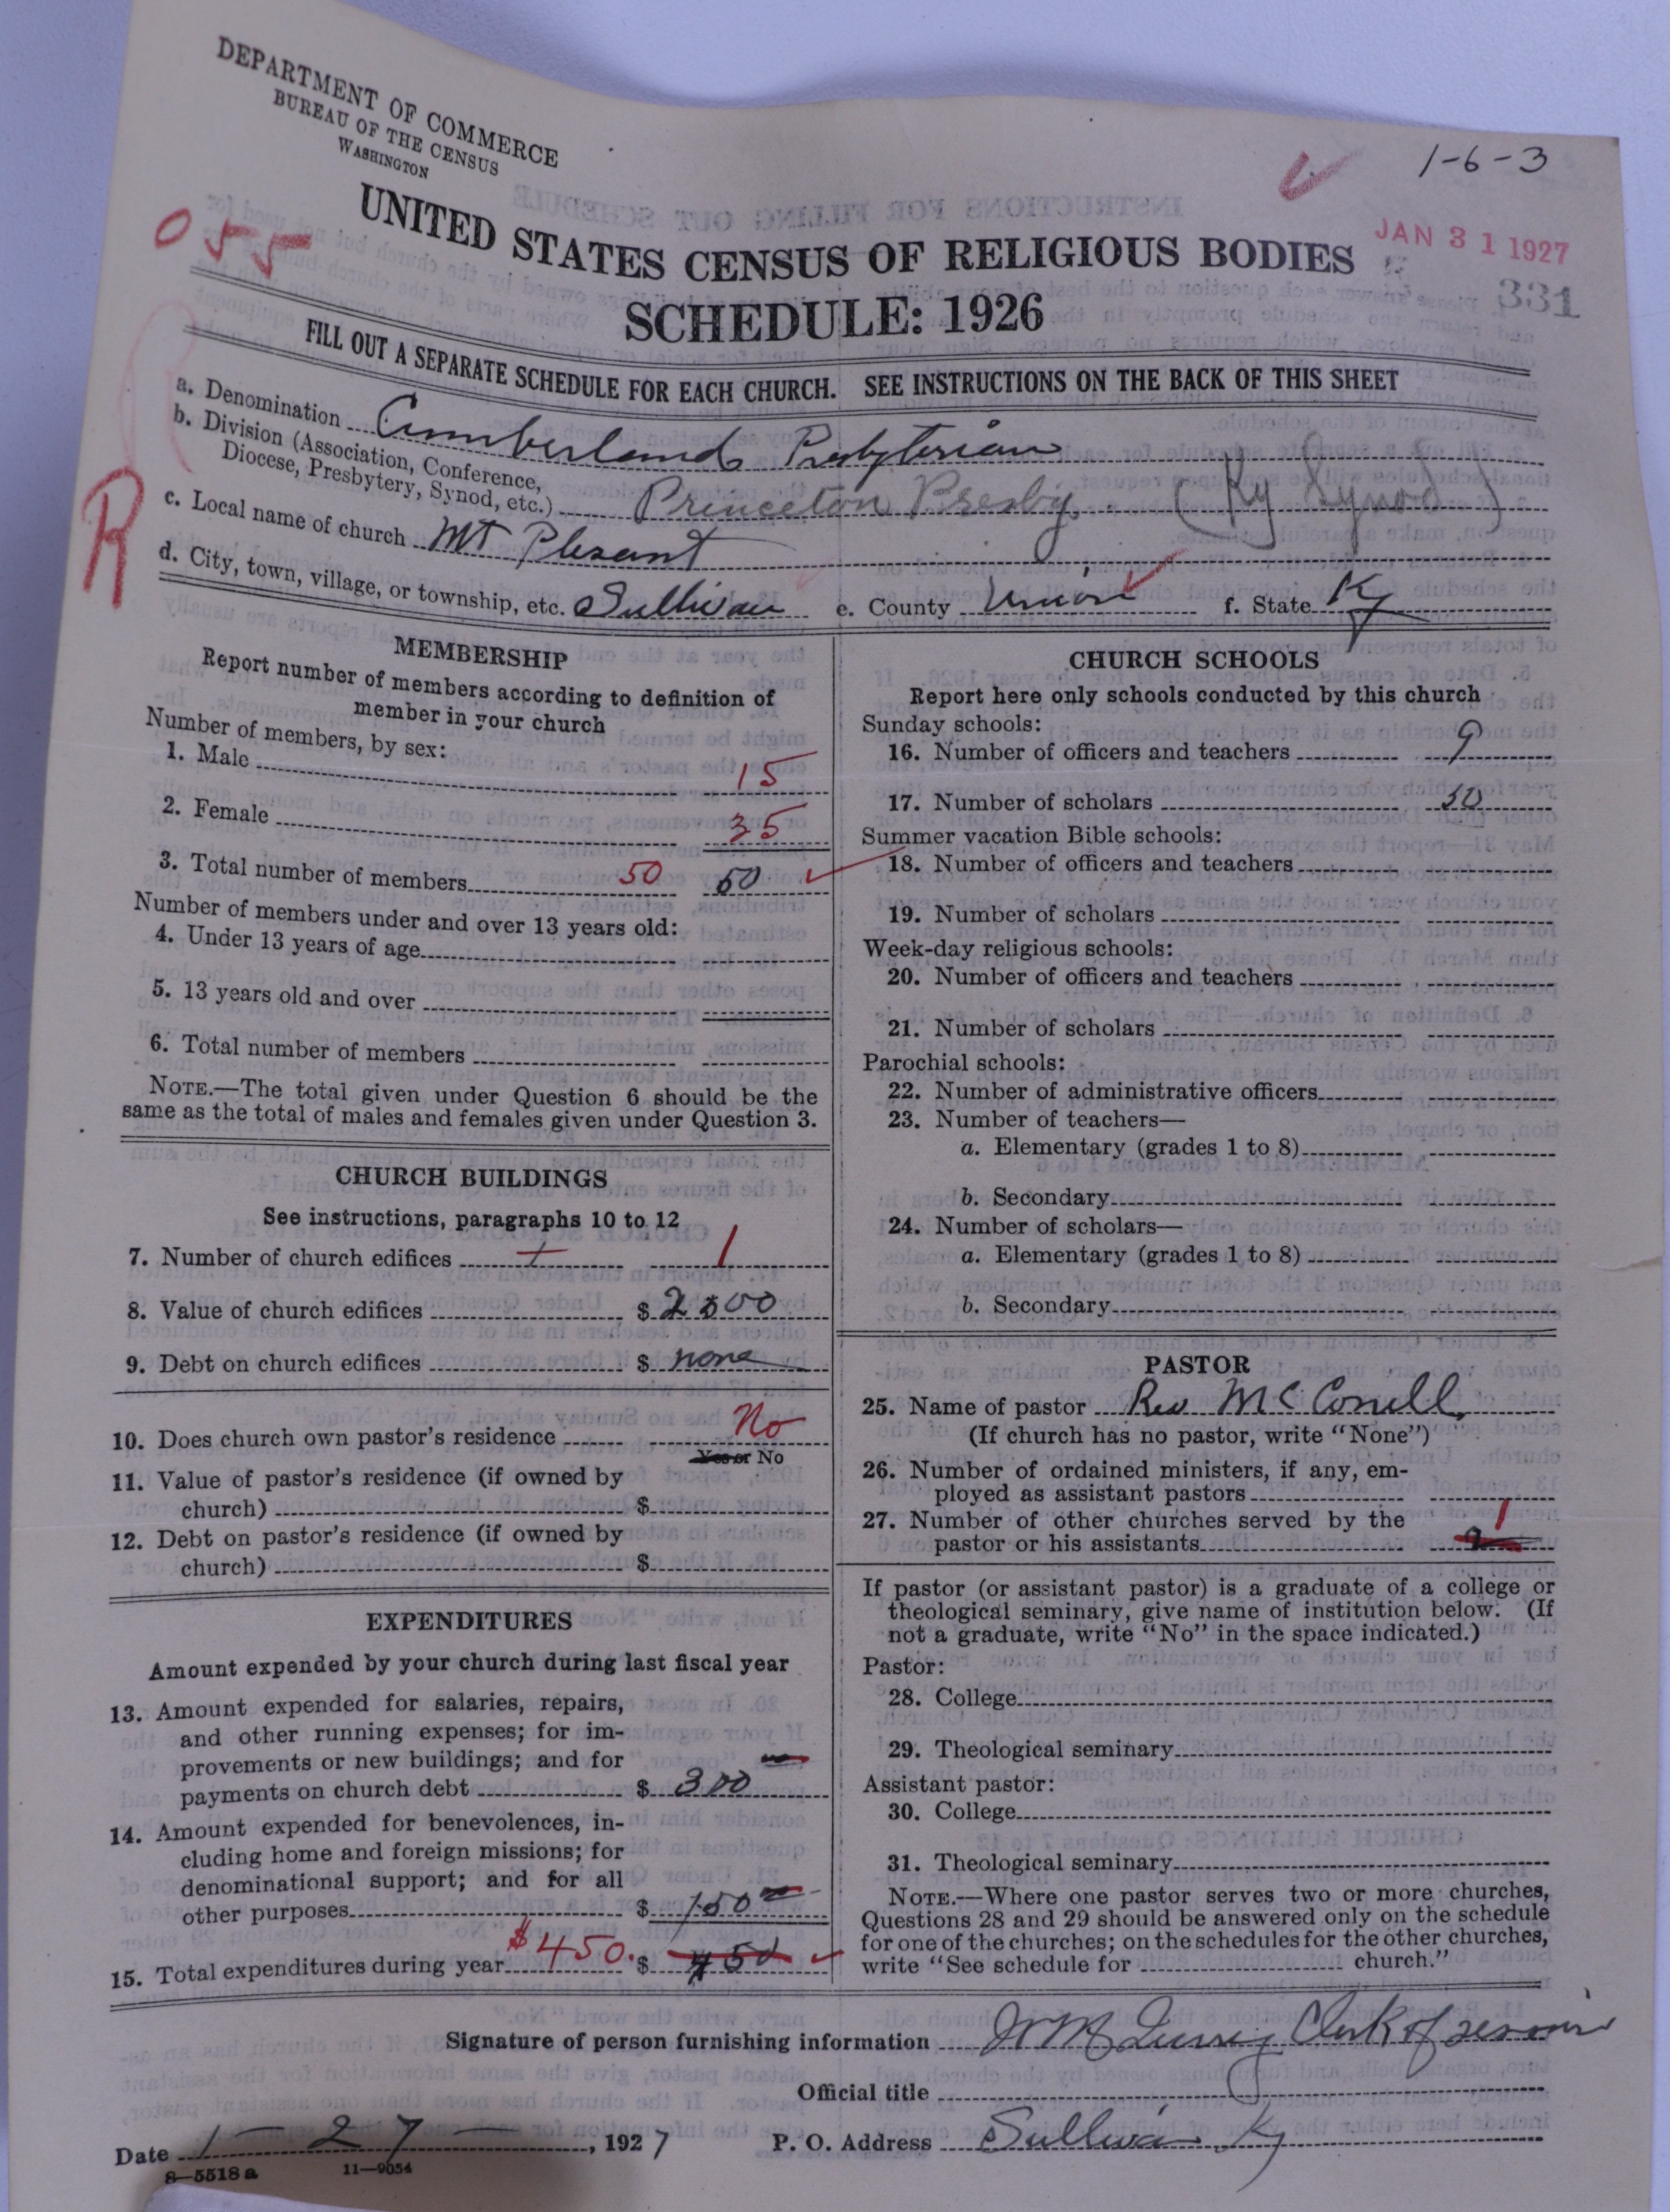 DEPARTMENT OF COMMERCE
BUREAU OF THE CENSUS
WASHINGTON
1-6-3
UNITED STATES CENSUS OF RELIGIOUS BODIES
JAN 31 1927
055
331
SCHEDULE: 1926
FILL OUT A SEPARATE SCHEDULE FOR EACH CHURCH. SEE INSTRUCTIONS ON THE BACK OF THIS SHEET
R
a. Denomination Cumberland Presbyterian
b. Division (Association, Conference,
Diocese, Presbytery, Synod, etc.) Princeton Presby. (Ky Synod)
c. Local name of church Mt Plesant
d. City, town, village, or township, etc. Sullivan e. County Union f. State Ky
MEMBERSHIP
Report number of members according to definition of
member in your church
Number of members, by sex:
1. Male 15
2. Female 35
3. Total number of members 50 50
Number of members under and over 13 years old:
4. Under 13 years of age
5. 13 years old and over
6. Total number of members
NOTE.—The total given under Question 6 should be the
same as the total of males and females given under Question 3.
CHURCH BUILDINGS
See instructions, paragraphs 10 to 12
7. Number of church edifices 1 1
8. Value of church edifices $
9. Debt on church edifices $ none
10. Does church own pastor's residence No
Yes or No
11. Value of pastor's residence (if owned by
church) $
12. Debt on pastor's residence (if owned by
church) $
EXPENDITURES
Amount expended by your church during last fiscal year
13. Amount expended for salaries, repairs,
and other running expenses; for im-
provements or new buildings; and for
payments on church debt $ 300
14. Amount expended for benevolences, in-
cluding home and foreign missions; for
denominational support; and for all
other purposes $ 150
15. Total expenditures during year $450. $ 450
CHURCH SCHOOLS
Report here only schools conducted by this church
Sunday schools:
16. Number of officers and teachers 9
17. Number of scholars 50
Summer vacation Bible schools:
18. Number of officers and teachers
19. Number of scholars
Week-day religious schools:
20. Number of officers and teachers
21. Number of scholars
Parochial schools:
22. Number of administrative officers
23. Number of teachers—
a. Elementary (grades 1 to 8)
b. Secondary
24. Number of scholars—
a. Elementary (grades 1 to 8)
b. Secondary
PASTOR
25. Name of pastor Rev McConell
(If church has no pastor, write "None")
26. Number of ordained ministers, if any, em-
ployed as assistant pastors
27. Number of other churches served by the 1
pastor or his assistants 2
If pastor (or assistant pastor) is a graduate of a college or
theological seminary, give name of institution below. (If
not a graduate, write "No" in the space indicated.)
Pastor:
28. College
29. Theological seminary
Assistant pastor:
30. College
31. Theological seminary
NOTE.—Where one pastor serves two or more churches,
Questions 28 and 29 should be answered only on the schedule
for one of the churches; on the schedules for the other churches,
write "See schedule for church."
Signature of person furnishing information Clerk of session
Official title
Date 1-27-, 1927 P. O. Address Sullivan Ky
8-5518 a 11-9054